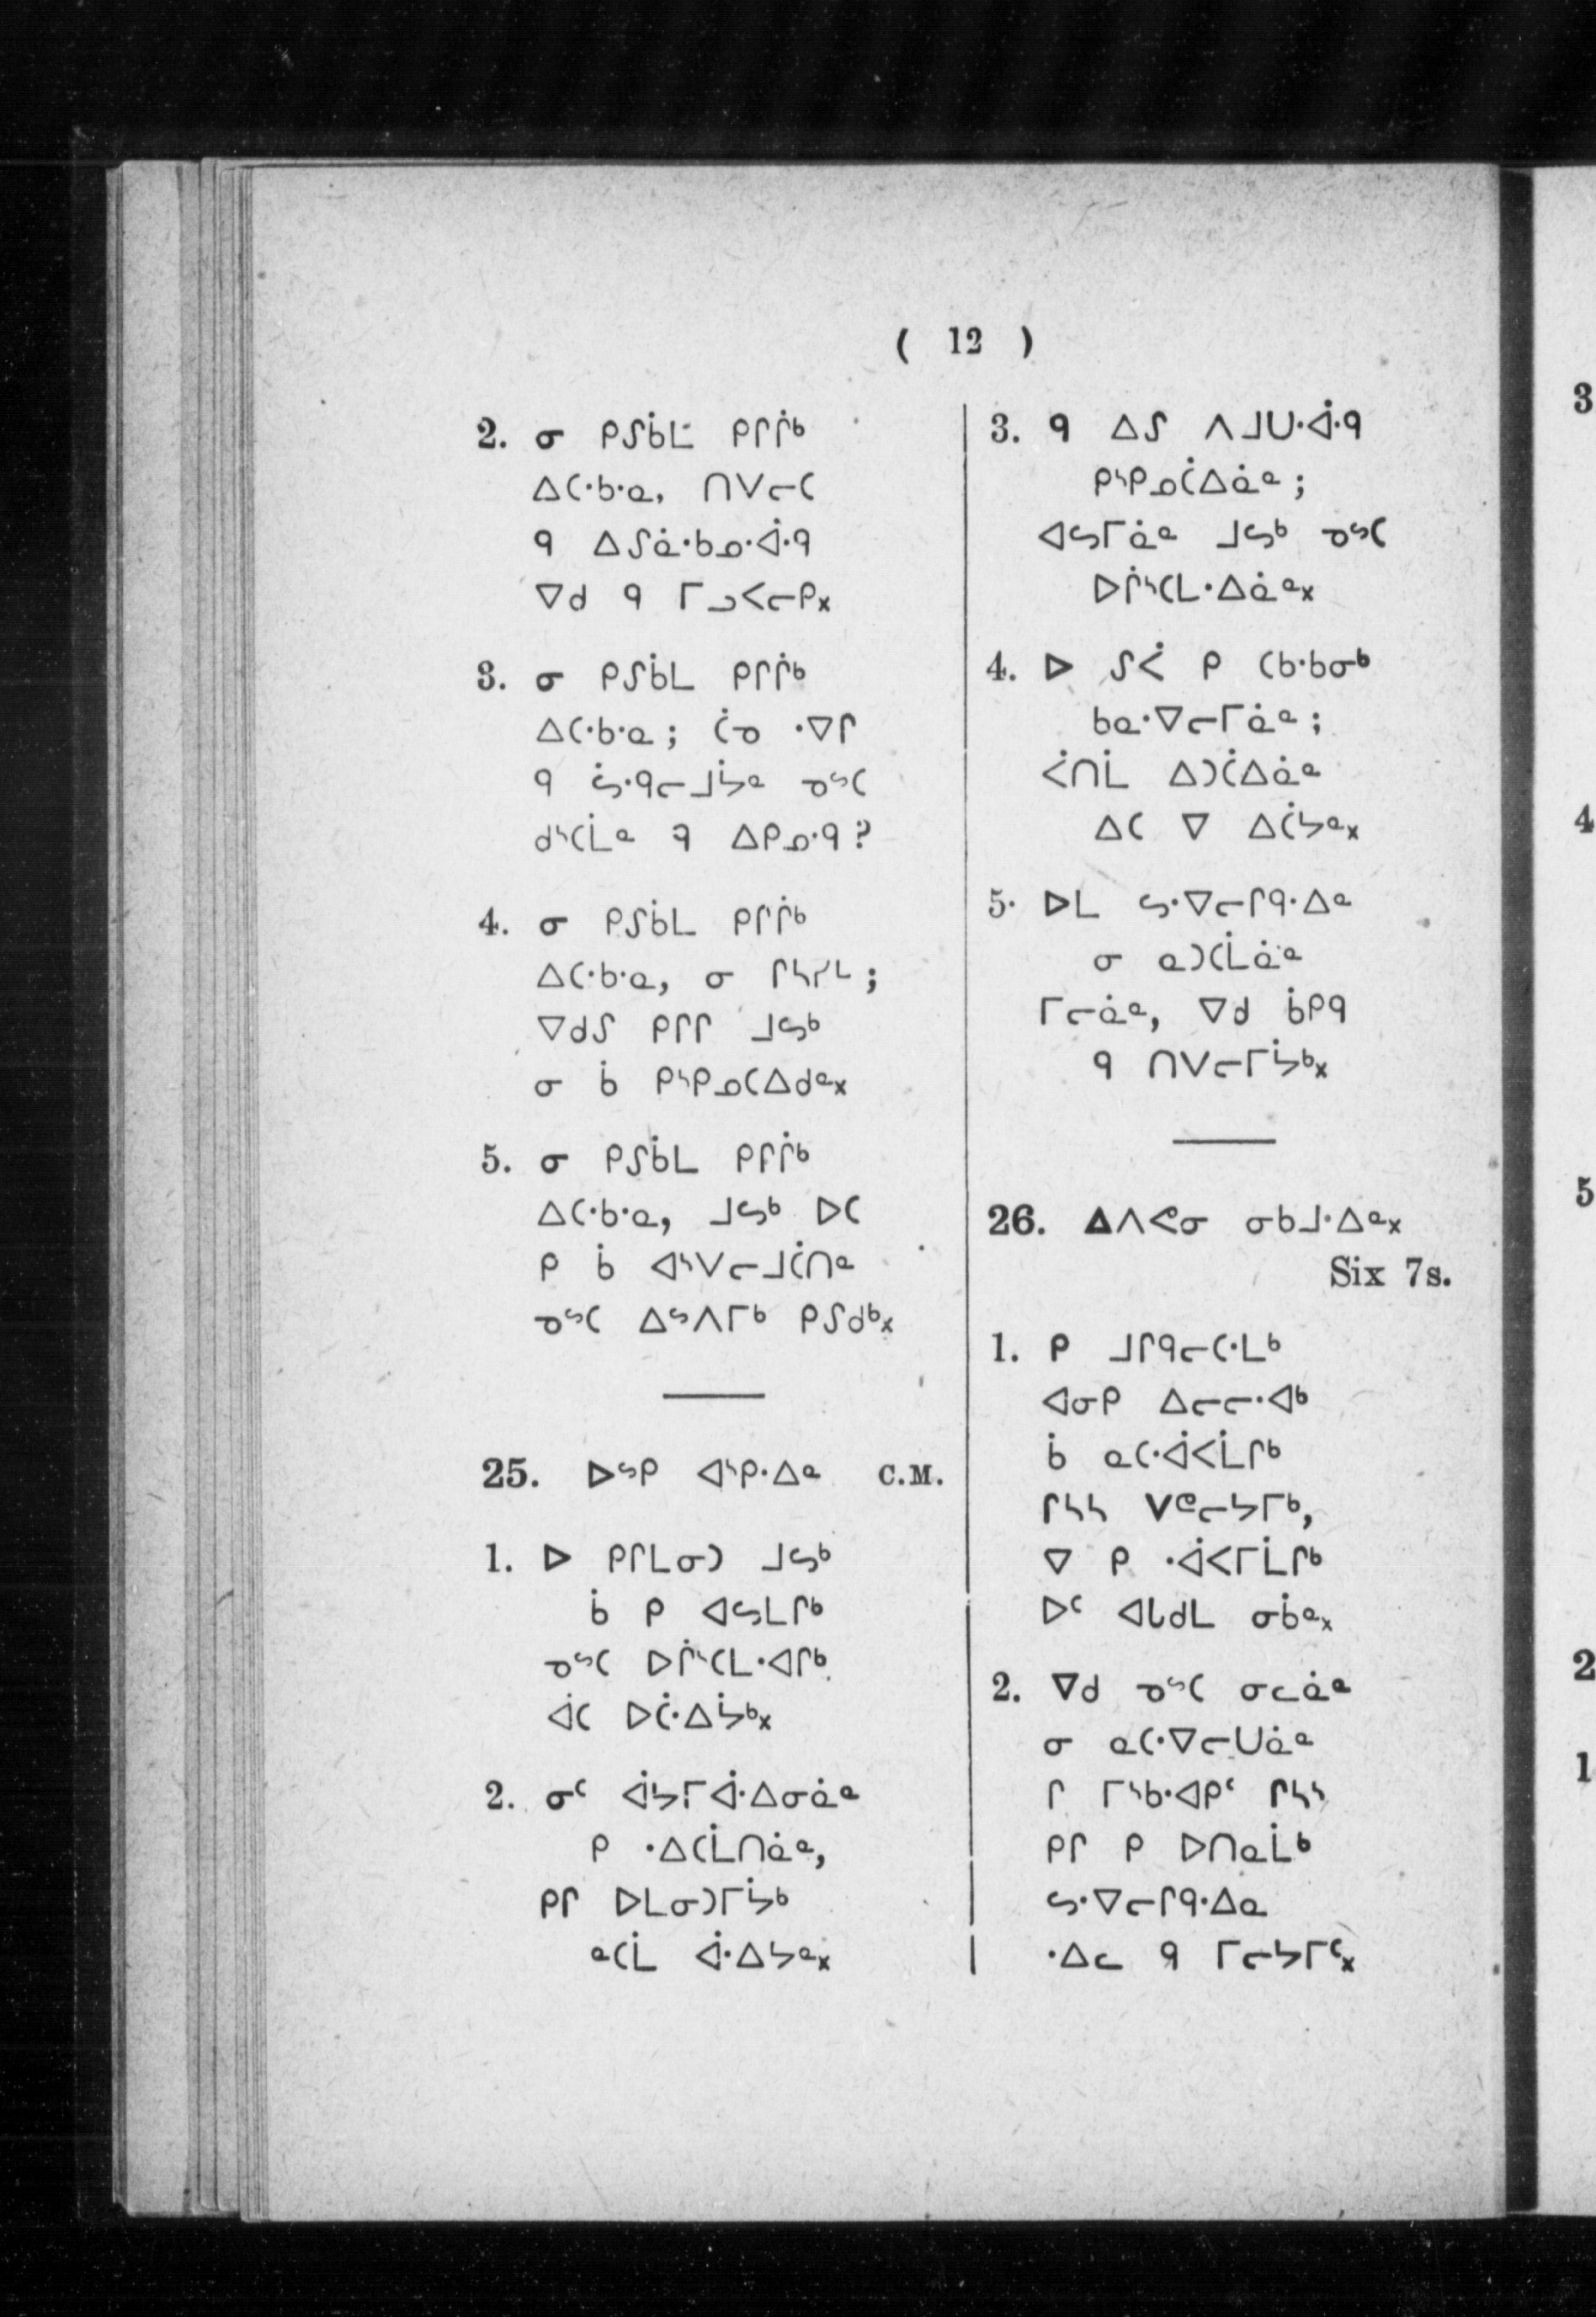 ( 12 )
2. ᓂ ᑭᔑᑳᒪ ᑭᒋᒌᒃ
ᐃᑕᐧᑲᐧᓇ, ᑎᐯᓕᑕ
ᑫ ᐃᔑᓈᐧᑲᓄᐧᐋᐧᑫ
ᐁᑯ ᑫ ᒥᓗᐸᓕᑭ᙮
3. ᓂ ᑭᔑᑳᒪ ᑭᒋᒌᒃ
ᐃᑕᐧᑲᐧᓇ; ᑖᓀ ᐧᐁᒋ
ᑫ ᓵᐧᑫᓕᒧᔮᓐ ᓀᔥᑕ
ᑯᔅᑖᒪᓐ ᑫ ᐃᑭᓄᐧᑫ?
4. ᓂ ᑭᔑᑳᒪ ᑭᒋᒌᒃ
ᐃᑕᐧᑲᐧᓇ, ᓂ ᒋᓴᓯᒻ;
ᐁᑯᔑ ᑭᒋᒋ ᒧᔕᒃ
ᓂ ᑳ ᑭᔅᑭᓄᑕᐃᑯᓐ᙮
5. ᓂ ᑭᔑᑳᒪ ᑭᒋᒌᒃ
ᐃᑕᐧᑲᐧᓇ, ᒧᔕᒃ ᐅᑕ
ᑭ ᑳ ᐊᔅᐯᓕᒧᑖᑎᓐ
ᓀᔥᑕ ᐃᔥᐱᒥᒃ ᑭᔑᑯᒃ᙮
25. ᐅᔥᑭ ᐊᔅᑭᐧᐃᓐ C.M.
1. ᐅ ᑭᒋᒪᓂᑐ ᒧᔕᒃ
ᑳ ᑭ ᐊᔕᒪᒋᒃ
ᓀᔥᑕ ᐅᒌᔅᑕᒪᐧᐊᒋᒃ
ᐋᑕ ᐅᑖᐧᐃᔮᒃ᙮
2. ᓂᑦ ᐋᔭᒥᐋᐧᐃᓂᓈᓐ
ᑭ ᐧᐃᑕᒫᑎᓈᓐ,
ᑭᒋ ᐅᒪᓂᑐᒥᔮᒃ
ᓐᑕᒫ ᐋᐧᐃᔭᓐ᙮
3. ᑫ ᐃᔑ ᐱᒧᑌᐧᐋᐧᑫ
ᑭᔅᑭᓄᑖᐃᓈᓐ;
ᐊᔕᒥᓈᓐ ᒧᔕᒃ ᓀᔥᑕ
ᐅᒌᔅᑕᒪᐧᐃᓈᓐ᙮
4. ᐅ ᔑᐹ ᑭ ᑕᑲᐧᑲᓂᒃ
ᑲᓇᐧᐁᓕᒥᓈᓐ;
ᐹᑎᒫ ᐃᑐᑖᐃᓈᓐ
ᐃᑕ ᐁ ᐃᑖᔭᓐ᙮
5. ᐅᒪ ᔕᐧᐁᓕᒋᑫᐧᐃᓐ
ᓂ ᓇᑐᑕᒫᓈᓐ
ᒥᓕᓈᓐ, ᐁᑯ ᑳᑭᑫ
ᑫ ᑎᐯᓕᒥᔮᒃ᙮
26. ᐃᐱᕙᓂ ᓂᑲᒧᐧᐃᓐ᙮
Six 7s.
1. ᑭ ᒧᒋᑫᓕᑕᐧᒪᒃ
ᐊᓂᑭ ᐃᓕᓕᐧᐊᒃ
ᑳ ᓇᑕᐧᐋᐸᒫᒋᒃ
ᒋᓴᓴ ᐯᕙᓕᔭᒥᒃ,
ᐁ ᑭ ᐧᐋᐸᒥᒫᒋᒃ
ᐅᑦ ᐊᒐᑯᒪ ᓂᑳᓐ᙮
2. ᐁᑯ ᓀᔥᑕ ᓂᓚᓈᓐ
ᓂ ᓇᑕᐧᐁᓕᑌᓈᓐ
ᒋ ᒥᔅᑲᐧᐊᑭᑦ ᒋᓴᔅ
ᑭᒋ ᑭ ᐅᑎᓇᒫᒃ
ᔕᐧᐁᓕᒋᑫᐧᐃᓇ
ᐧᐃᓚ ᑫ ᒥᓕᔭᒥᑦ᙮